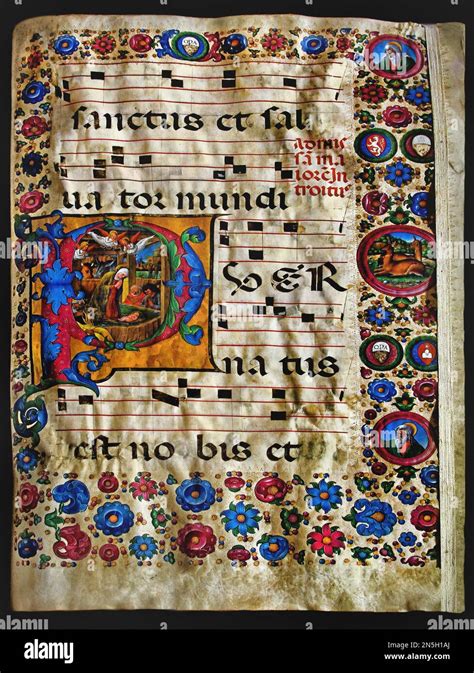 sanctus et sal
admis
sa ma
iore In
troitus
ua tor mundi
PUER
na tus
est no bis et
alamy
Image ID: 2N5H1AJ
www.alamy.com